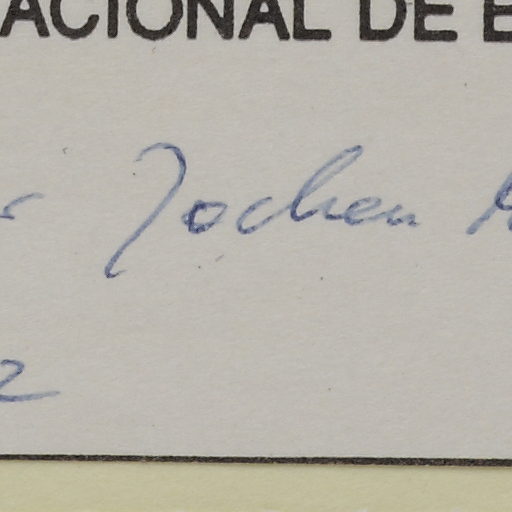 ACIONAL DE
Jochen